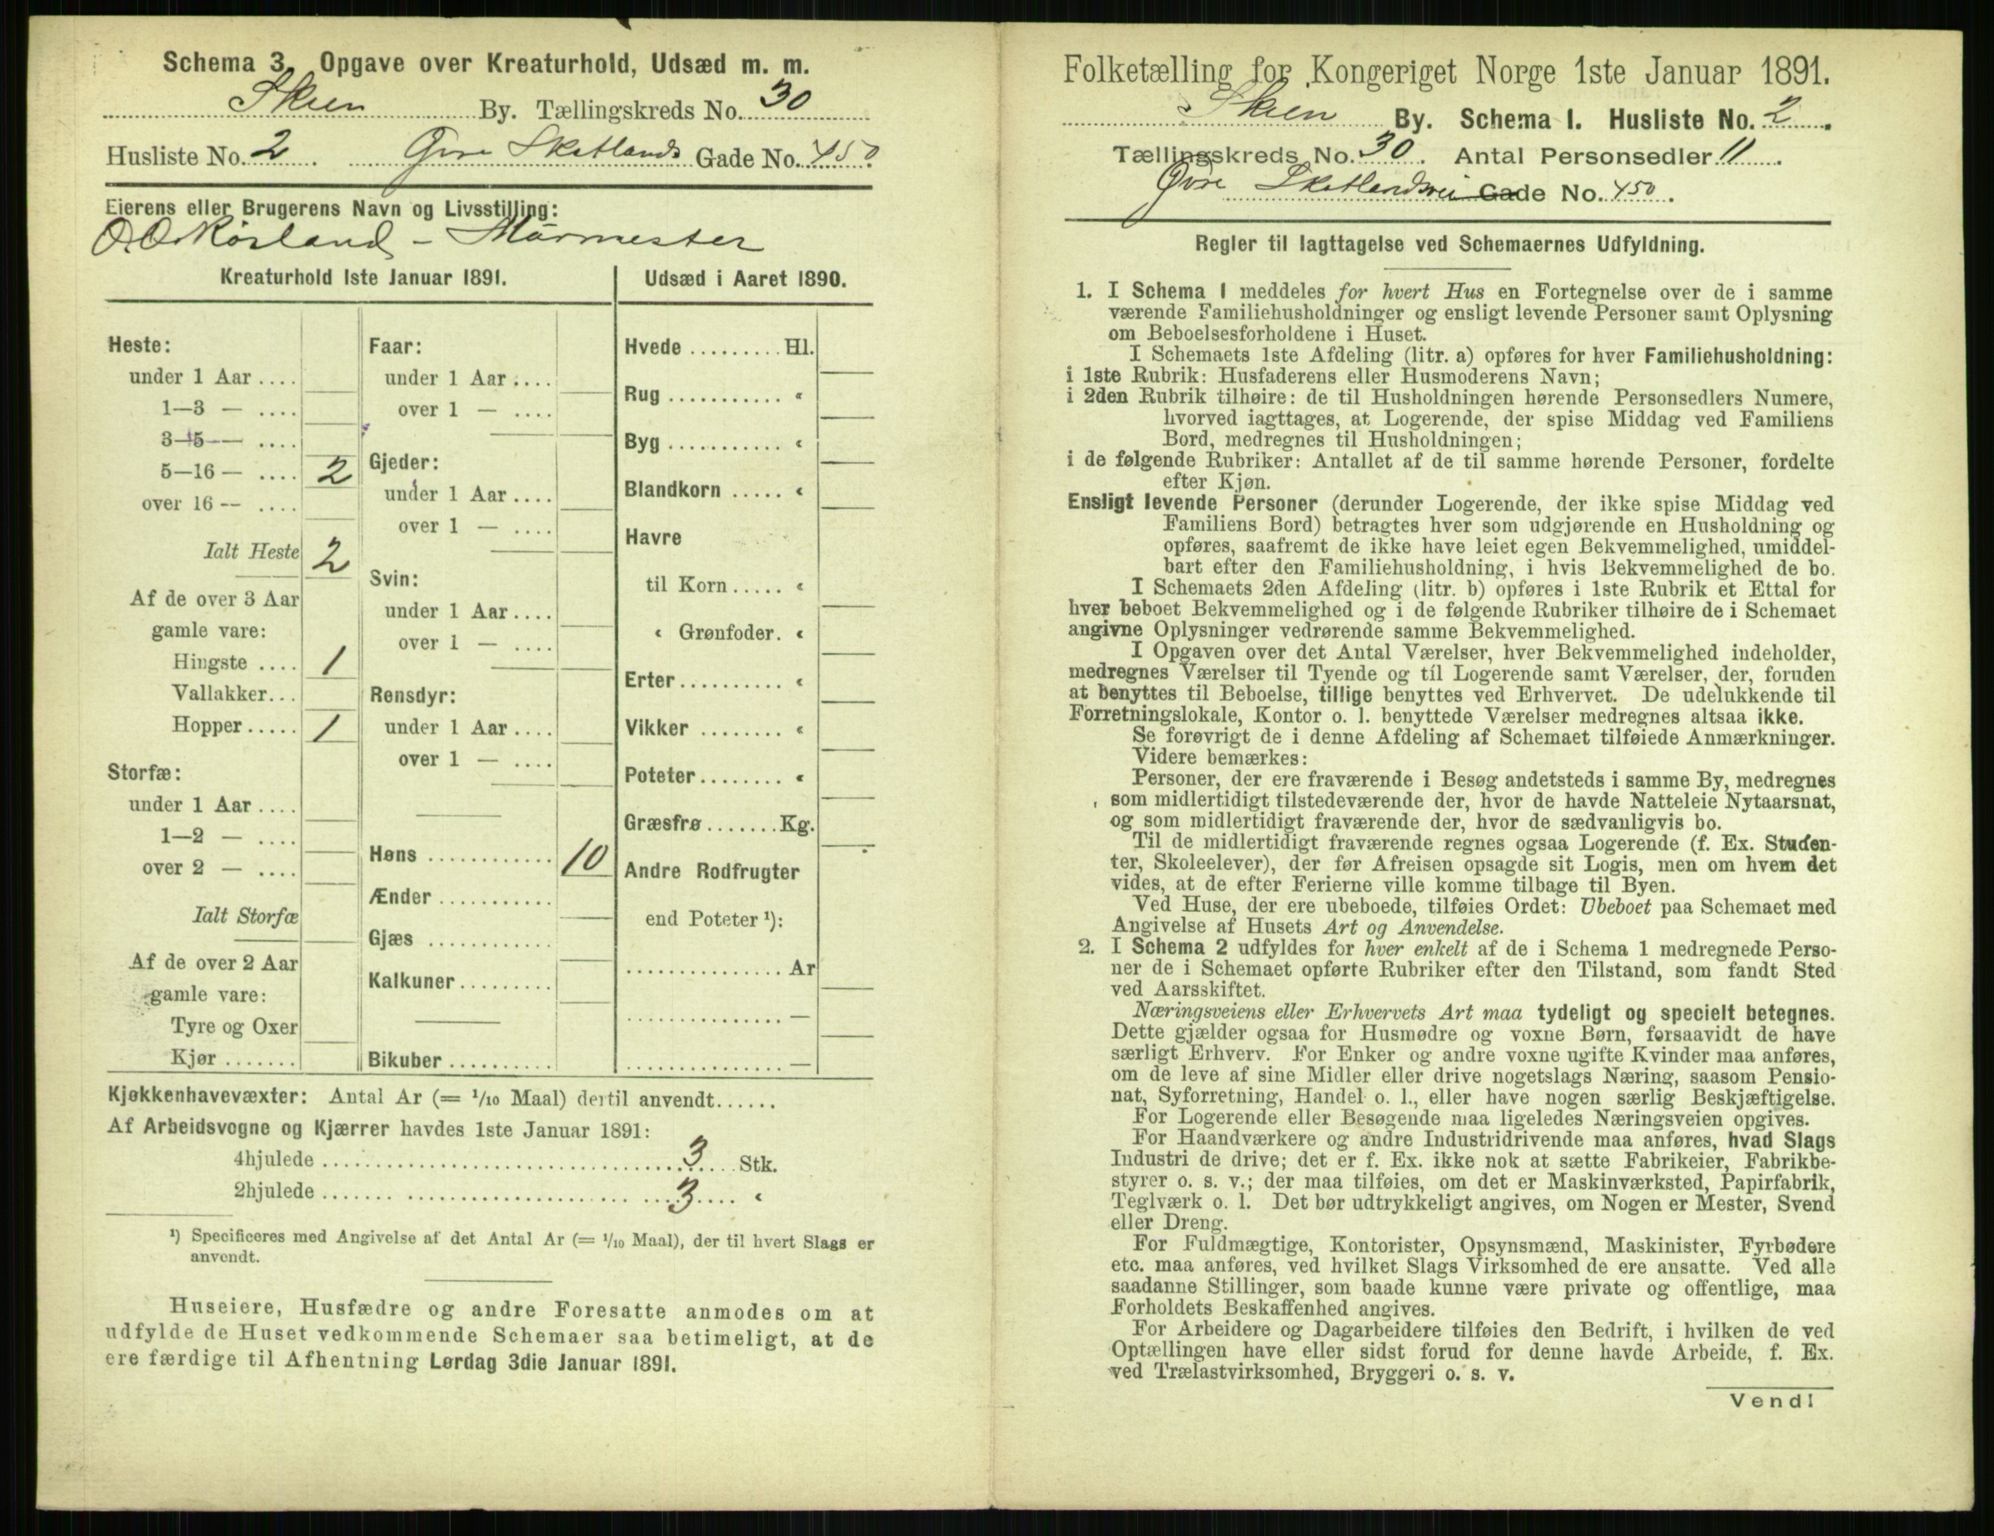 Schema 3. Opgave over Kreaturhold, Udsæd m. m.
Skien By. Tællingskreds No. 30
Husliste No. 2 Øvre Gade No. 450.
Eierens eller Brugerens Navn og Livsstilling:
Murmester
Kreaturhold 1ste Januar 1891.
Heste:
under 1 Aar ....
1—3 — ....
3—5 — ....
5—16 — .... 2
over 16 — ....
Ialt Heste 2
Af de over 3 Aar
gamle vare:
Hingste .... 1
Vallakker...
Hopper..... 1
Storfæ:
under 1 Aar ....
1—2 — ....
over 2 — ....
Ialt Storfæ
Af de over 2 Aar
gamle vare:
Tyre og Oxer
Kjør .......
Faar:
under 1 Aar ....
over 1 — ....
Gjeder:
under 1 Aar ....
over 1 — ....
Svin:
under 1 Aar ....
over 1 — ....
Rensdyr:
under 1 Aar ....
over 1 — ....
Høns ............ 10
Ænder ...........
Gjæs ............
Kalkuner.........
Bikuber ..........
Udsæd i Aaret 1890.
Hvede ......... Hl.
Rug ........... «
Byg ........... «
Blandkorn ..... «
Havre
til Korn..... «
« Grønfoder. «
Erter.......... «
Vikker ........ «
Poteter........ «
Græsfrø.......Kg.
Andre Rodfrugter
end Poteter ¹):
............... Ar
............... —
............... —
Kjøkkenhavevæxter: Antal Ar (= 1/10 Maal) dertil anvendt......
Af Arbeidsvogne og Kjærrer havdes 1ste Januar 1891:
4hjulede .................................. 3 .... Stk.
2hjulede .................................. 3 .... «
¹) Specificeres med Angivelse af det Antal Ar (= 1/10 Maal), der til hvert Slags er
anvendt.
Huseiere, Husfædre og andre Foresatte anmodes om at
udfylde de Huset vedkommende Schemaer saa betimeligt, at de
ere færdige til Afhentning Lørdag 3die Januar 1891.
Folketælling for Kongeriget Norge 1ste Januar 1891.
Skien By. Schema I. Husliste No. 2.
Tællingskreds No. 30. Antal Personsedler 11.
Øvre Gade No. 450.
Regler til Iagttagelse ved Schemaernes Udfyldning.
1. I Schema I meddeles for hvert Hus en Fortegnelse over de i samme
værende Familiehusholdninger og ensligt levende Personer samt Oplysning
om Beboelsesforholdene i Huset.
I Schemaets 1ste Afdeling (litr. a) opføres for hver Familiehusholdning:
i 1ste Rubrik: Husfaderens eller Husmoderens Navn;
i 2den Rubrik tilhøire: de til Husholdningen hørende Personsedlers Numere,
hvorved iagttages, at Logerende, der spise Middag ved Familiens
Bord, medregnes til Husholdningen;
i de følgende Rubriker: Antallet af de til samme hørende Personer, fordelte
efter Kjøn.
Ensligt levende Personer (derunder Logerende, der ikke spise Middag ved
Familiens Bord) betragtes hver som udgjørende en Husholdning og
opføres, saafremt de ikke have leiet egen Bekvemmelighed, umiddel-
bart efter den Familiehusholdning, i hvis Bekvemmelighed de bo.
I Schemaets 2den Afdeling (litr. b) opføres i 1ste Rubrik et Ettal for
hver beboet Bekvemmelighed og i de følgende Rubriker tilhøire de i Schemaet
angivne Oplysninger vedrørende samme Bekvemmelighed.
I Opgaven over det Antal Værelser, hver Bekvemmelighed indeholder,
medregnes Værelser til Tyende og til Logerende samt Værelser, der, foruden
at benyttes til Beboelse, tillige benyttes ved Erhvervet. De udelukkende til
Forretningslokale, Kontor o. l. benyttede Værelser medregnes altsaa ikke.
Se forøvrigt de i denne Afdeling af Schemaet tilføiede Anmærkninger.
Videre bemærkes:
Personer, der ere fraværende i Besøg andetsteds i samme By, medregnes
som midlertidigt tilstedeværende der, hvor de havde Natteleie Nytaarsnat,
og som midlertidigt fraværende der, hvor de sædvanligvis bo.
Til de midlertidigt fraværende regnes ogsaa Logerende (f. Ex. Studen-
ter, Skoleelever), der før Afreisen opsagde sit Logis, men om hvem det
vides, at de efter Ferierne ville komme tilbage til Byen.
Ved Huse, der ere ubeboede, tilføies Ordet: Ubeboet paa Schemaet med
Angivelse af Husets Art og Anvendelse.
2. I Schema 2 udfyldes for hver enkelt af de i Schema 1 medregnede Perso-
ner de i Schemaet opførte Rubriker efter den Tilstand, som fandt Sted
ved Aarsskiftet.
Næringsveiens eller Erhvervets Art maa tydeligt og specielt betegnes.
Dette gjælder ogsaa for Husmødre og voxne Børn, forsaavidt de have
særligt Erhverv. For Enker og andre voxne ugifte Kvinder maa anføres,
om de leve af sine Midler eller drive nogetslags Næring, saasom Pensio-
nat, Syforretning, Handel o. l., eller have nogen særlig Beskjæftigelse.
For Logerende eller Besøgende maa ligeledes Næringsveien opgives.
For Haandværkere og andre Industridrivende maa anføres, hvad Slags
Industri de drive; det er f. Ex. ikke nok at sætte Fabrikeier, Fabrikbe-
styrer o. s. v.; der maa tilføies, om det er Maskinværksted, Papirfabrik,
Teglværk o. l. Det bør udtrykkeligt angives, om Nogen er Mester, Svend
eller Dreng.
For Fuldmægtige, Kontorister, Opsynsmænd, Maskinister, Fyrbødere
etc. maa anføres, ved hvilket Slags Virksomhed de ere ansatte. Ved alle
saadanne Stillinger, som baade kunne være private og offentlige, maa
Forholdets Beskaffenhed angives.
For Arbeidere og Dagarbeidere tilføies den Bedrift, i hvilken de ved
Optællingen have eller sidst forud for denne havde Arbeide, f. Ex.
ved Trælastvirksomhed, Bryggeri o. s. v.
Vend!